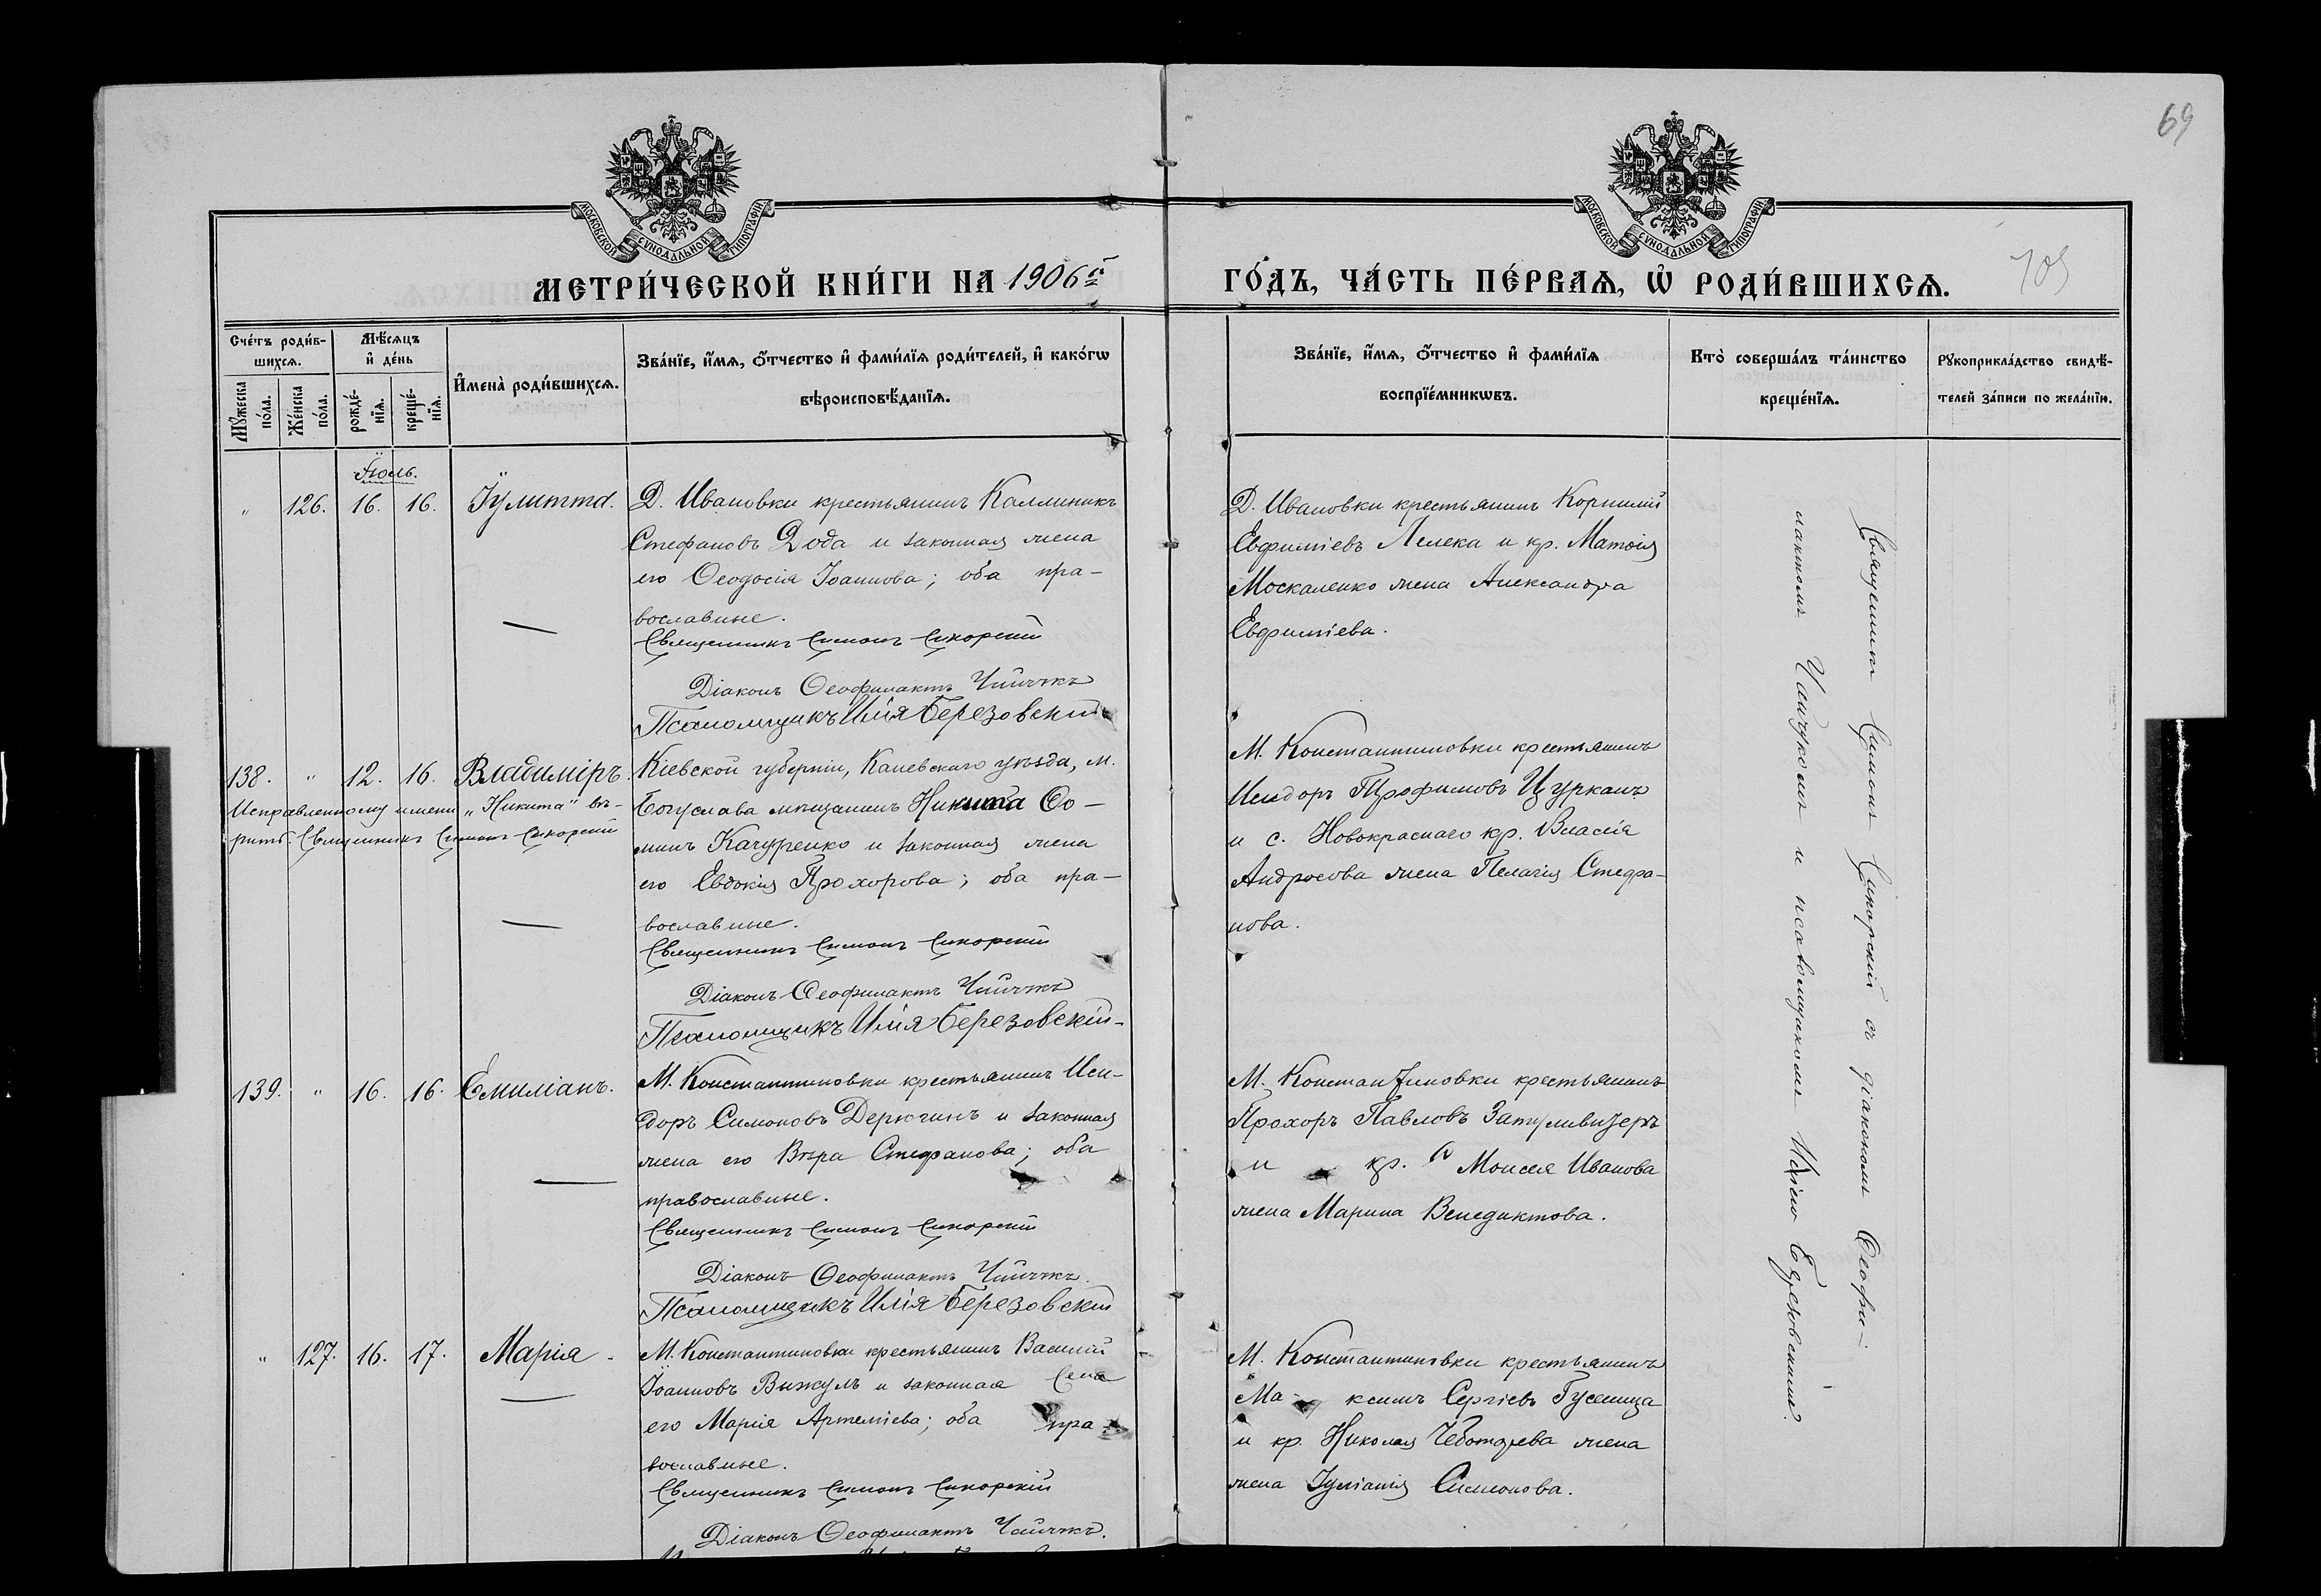 69
МОСКОВСКОЙ СѴНОДАЛЬНОЙ ТИПОГРАФІИ
МОСКОВСКОЙ СѴНОДАЛЬНОЙ ТИПОГРАФІИ
МЕТРИ́ЧЕСКОЙ КНИ́ГИ НА 1906й
ГО́ДЪ, ЧА́СТЬ ПЕ́РВАѦ, Ѡ҆ РОДИ́ВШИХСѦ.
Сче́тъ роди́в-
шихсѧ.
Мꙋ́жеска по́ла.
Же́нска по́ла.
Мѣ́сѧцъ
и҆ де́нь
рожде́-
нїѧ.
креще́-
нїѧ.
И҆мена̀ роди́вшихсѧ.
Зва́нїе, и҆́мѧ, ѻ҆́тчество и҆ фами́лїѧ роди́телей, и҆ како́гѡ
вѣроисповѣ́данїѧ.
Зва́нїе, и҆́мѧ, ѻ҆́тчество и҆ фами́лїѧ
воспрїе́мникѡвъ.
Кто̀ соверша́лъ та́инство
креще́нїѧ.
Рꙋкоприкла́дство свидѣ́-
телей за́писи по жела́нїю.
Іюль.
„ 126. 16. 16. Іулитта.
Д. Ивановки крестьянинъ Каллиникъ
Стефановъ Дода и законная жена
его Ѳеодосія Іоаннова; оба пра-
вославные.
Священникъ Симонъ Сикорскій
Діаконъ Ѳеофилактъ
Псаломщикъ Илія Березовскій
Д. Ивановки крестьянинъ Корнилій
Евфиміевъ Лелека и кр. Матѳія
Москаленко жена Александра
Евфиміева.
138. „ 12. 16. Владиміръ.
Исправленному имени „Никита" вѣ-
рить. Священникъ Симонъ Сикорскій
Кіевской губерніи, Каневскаго уѣзда, м.
Богуслава мѣщанинъ Никита Ѳо-
минъ Качуренко и законная жена
его Евдокія Прохорова; оба пра-
вославные.
Священникъ Симонъ Сикорскій
Діаконъ Ѳеофилактъ
Псаломщикъ Илія Березовскій
М. Константиновки крестьянинъ
Исидоръ Трофимовъ Цурканъ
и с. Новокраснаго кр. Власія
Андросова жена Пелагія Стефа-
нова.
139. „ 16. 16. Емиліанъ.
М. Константиновки крестьянинъ Иси-
доръ Симоновъ Дерюгинъ и законная
жена его Вѣра Стефанова; оба
православные.
Священникъ Симонъ Сикорскій
Діаконъ Ѳеофилактъ
Псаломщикъ Илія Березовскій
М. Константиновки крестьянинъ
Прохоръ Павловъ
и кр. Моисея Иванова
жена Марина Венедиктова.
„ 127. 16. 17. Марія
М. Константиновки крестьянинъ Василій
Іоанновъ Выжулъ и законная жена
его Марія Артеміева; оба пра-
вославные.
Священникъ Симонъ Сикорскій
Діаконъ Ѳеофилактъ
М. Константиновки крестьянинъ
Ма-ксимъ Сергіевъ Гусеница
и кр. Николая Чеботарева жена
жена Іуліанія Симонова.
Священникъ Симонъ Сикорскій съ діакономъ Ѳеофи-
лактомъ и псаломщикомъ Иліею Березовскимъ.